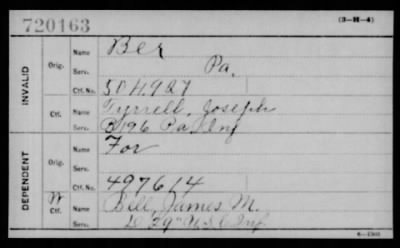 720163 (3-H-4)
INVALID
Orig. Name Ber
Serv. Pa.
Ctf. No. 504927
Ctf. Name Tyrrell, Joseph
Serv. B 196 Pa. Inf
DEPENDENT
Orig. Name For
Serv.
Ctf. No. 497614
W Ctf. Name Bell, James M.
Serv. D 39" U.S.C. Inf.
6-1301